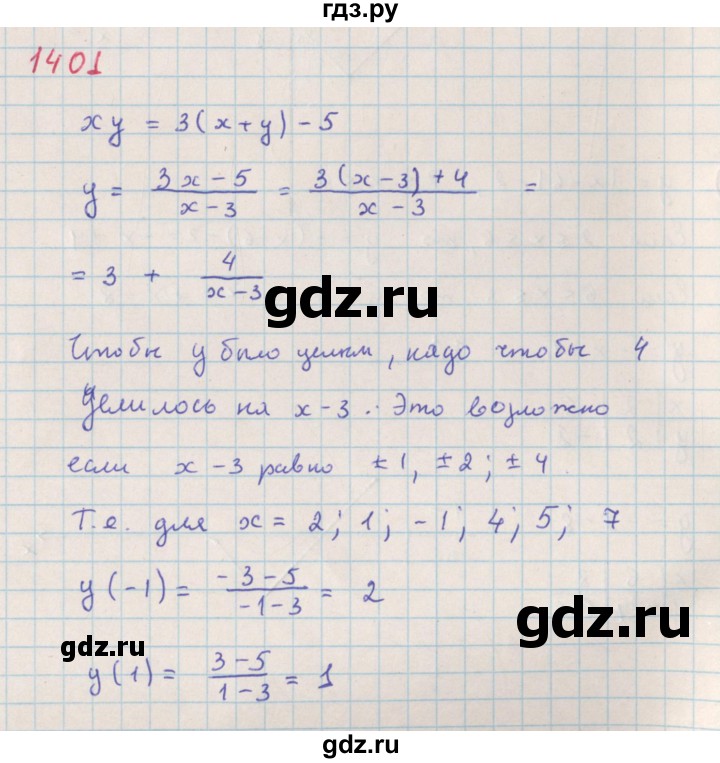 гдз.ру
1401
xy = 3(x+y) - 5
y = \frac{3x-5}{x-3} = \frac{3(x-3)+4}{x-3} =
= 3 + \frac{4}{x-3}
gdz.ru
Чтобы y было целым, надо чтобы 4
делилось на x-3. Это возможно
если x-3 равно ±1, ±2; ±4.
Т.е. для x = 2; 1; -1; 4; 5; 7
y(-1) = \frac{-3-5}{-1-3} = 2
gdz.ru
gdz.ru
y(1) = \frac{3-5}{1-3} = 1
gdz.ru